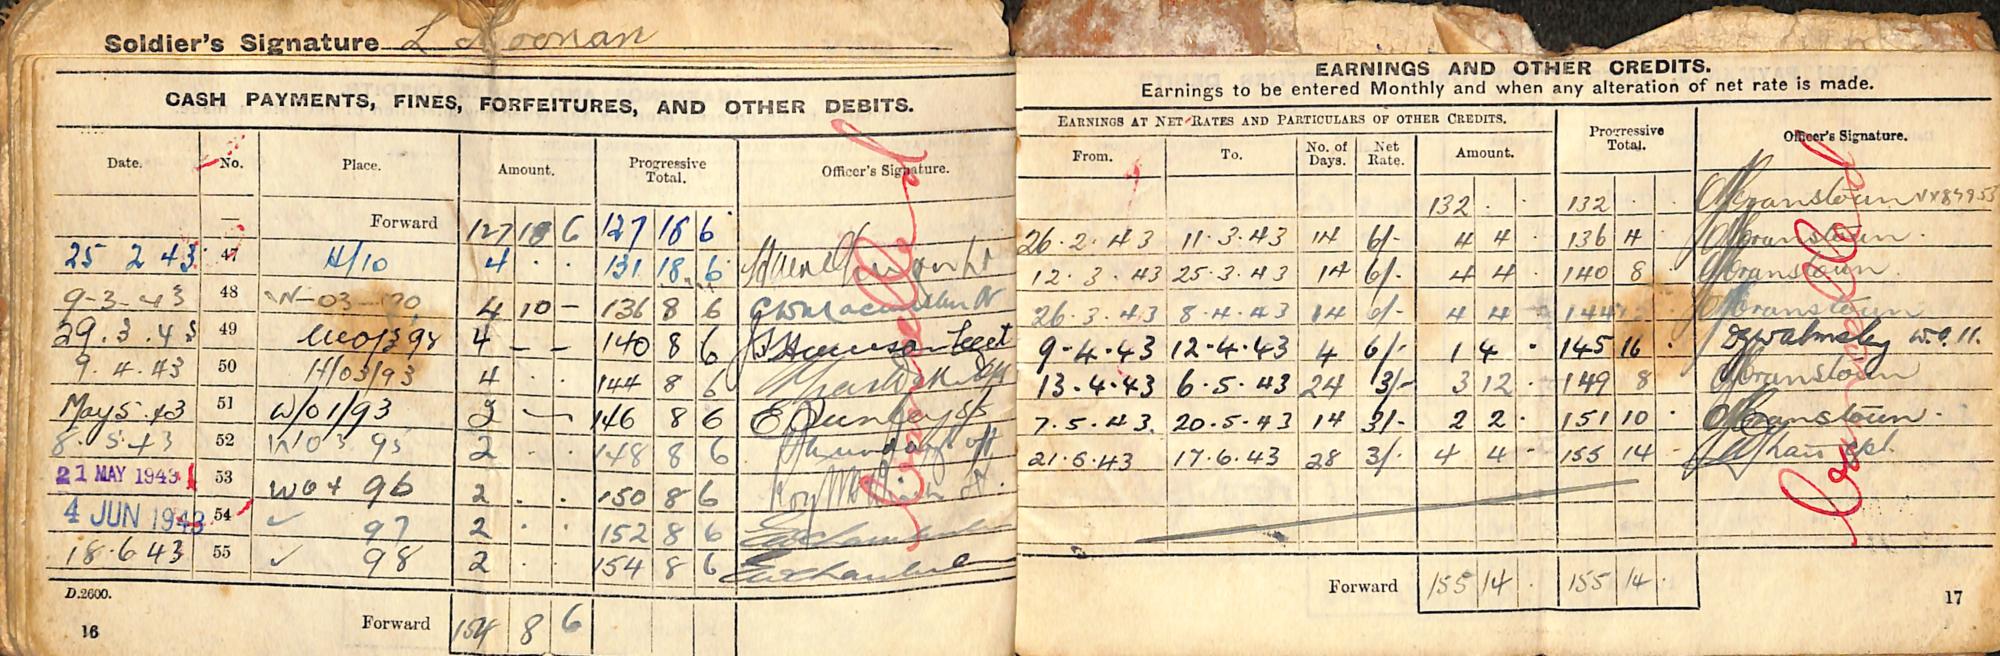 Soldier's Signature L Noonan
CASH PAYMENTS, FINES, FORFEITURES, AND OTHER DEBITS.
Date. No. Place. Amount. Progressive Total. Officer's Signature.
— Forward 127 18 6 127 18 6
25 2 43 47 H/10 4 . . 131 18 6
9-3-43 48 4 10 — 136 8 6
29.3.43 49 4 — — 140 8 6
9.4.43 50 H/03/93 4 . . 144 8 6
May 5.43 51 W/01/93 2 — 146 8 6
8.5.43 52 W03 95 2 . . 148 8 6
21 MAY 1943 53 96 2 . . 150 8 6
4 JUN 1943 54 ✓ 97 2 . . 152 8 6
18.6.43 55 ✓ 98 2 . . 154 8 6
D.2600.
Forward 154 8 6
16
Cancelled
EARNINGS AND OTHER CREDITS.
Earnings to be entered Monthly and when any alteration of net rate is made.
EARNINGS AT NET RATES AND PARTICULARS OF OTHER CREDITS. Progressive Total. Officer's Signature.
From. To. No. of Days. Net Rate. Amount.
132 . . 132 . . Cranstoun
26.2.43 11.3.43 14 6/- 4 4 . 136 4 . Cranstoun
12.3.43 25.3.43 14 6/- 4 4 . 140 8 . Cranstoun
26.3.43 8.4.43 14 6/- 4 4 . 144 Cranstoun
9.4.43 12.4.43 4 6/- 1 4 . 145 16 . Walmsley W.O.II.
13.4.43 6.5.43 24 3/- 3 12 . 149 8 Cranstoun
7.5.43 20.5.43 14 3/- 2 2 . 151 10 . Cranstoun
21.5.43 17.6.43 28 3/- 4 4 . 155 14 .
Forward 155 14 . 155 14 .
17
Cancelled